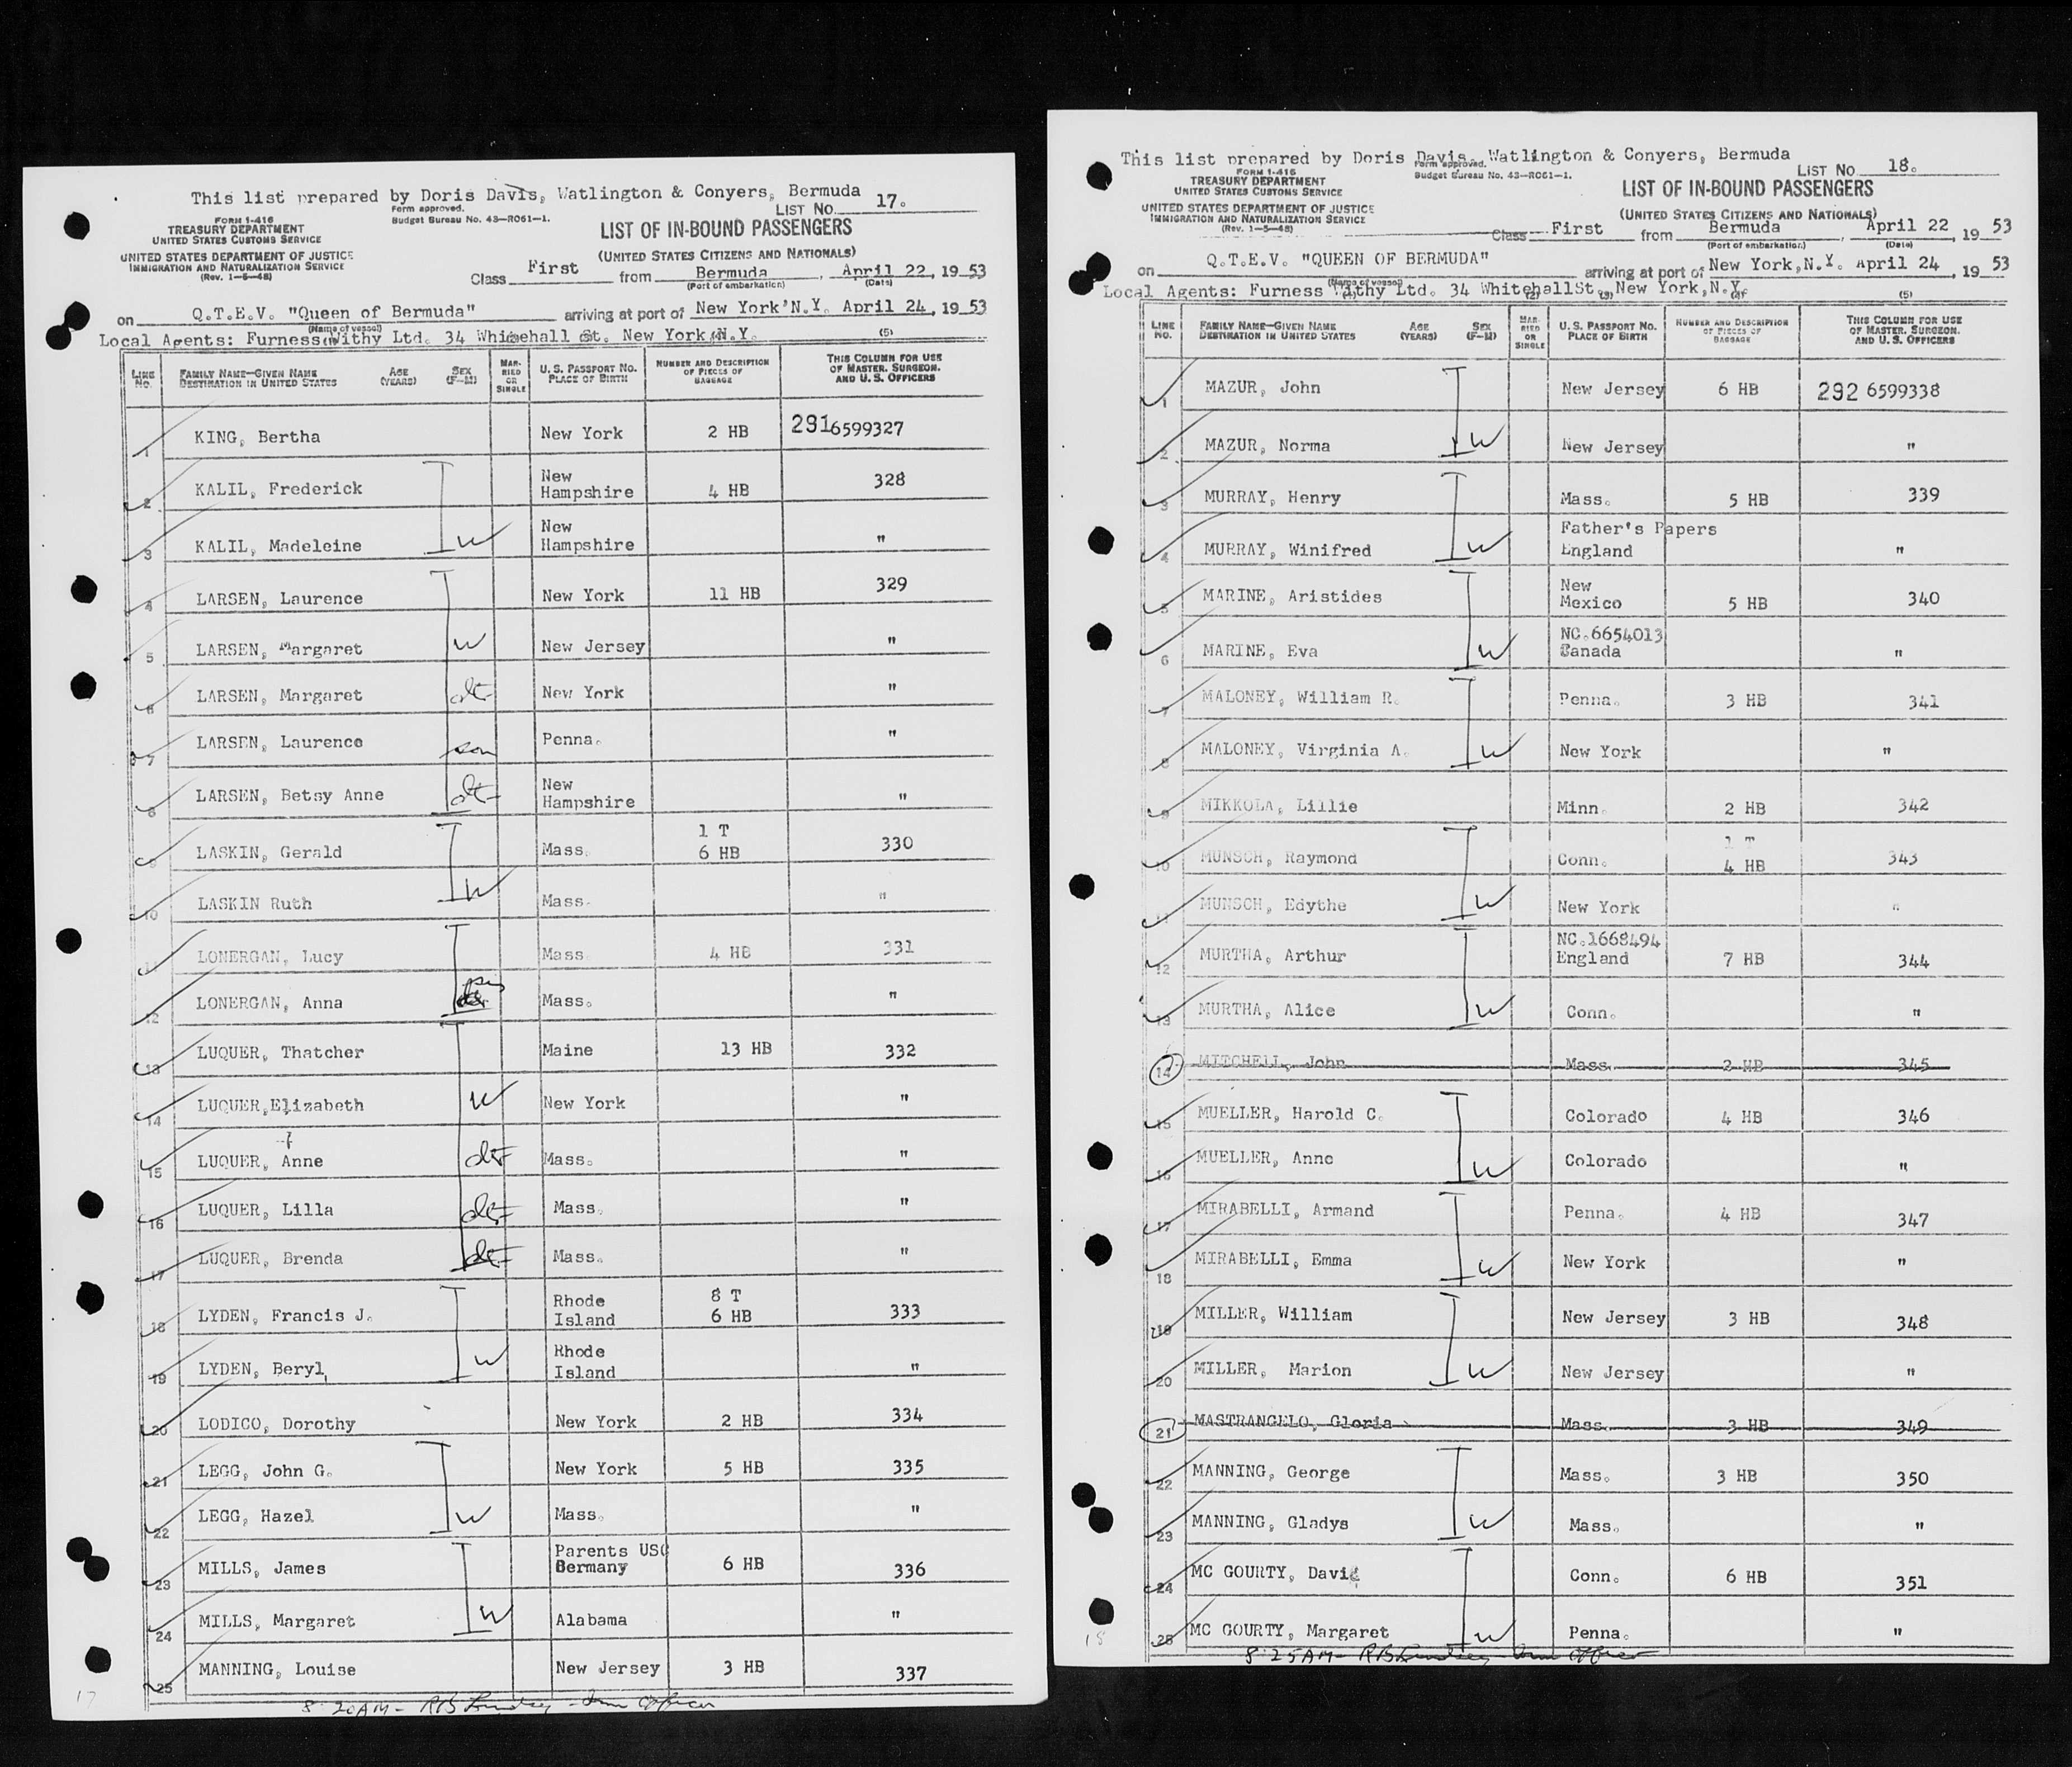 This list prepared by Doris Davis, Watlington & Conyers, Bermuda
Form approved.
Budget Bureau No. 43-R061-1.
LIST No. 17.
FORM I-416
TREASURY DEPARTMENT
UNITED STATES CUSTOMS SERVICE
UNITED STATES DEPARTMENT OF JUSTICE
IMMIGRATION AND NATURALIZATION SERVICE
(Rev. 1-5-48)
LIST OF IN-BOUND PASSENGERS
(UNITED STATES CITIZENS AND NATIONALS)
Class First from Bermuda, April 22, 1953
(Port of embarkation) (Date)
on Q.T.E.V. "Queen of Bermuda" arriving at port of New York'N.Y. April 24, 1953
(Name of vessel)
Local Agents: Furness Withy Ltd. 34 Whitehall St. New York N.Y. (5)
LINE No. FAMILY NAME—GIVEN NAME DESTINATION IN UNITED STATES AGE (YEARS) SEX (F-M) MARRIED OR SINGLE U.S. PASSPORT No. PLACE OF BIRTH NUMBER AND DESCRIPTION OF PIECES OF BAGGAGE THIS COLUMN FOR USE OF MASTER, SURGEON, AND U. S. OFFICERS
1 KING, Bertha New York 2 HB 291 6599327
2 KALIL, Frederick New Hampshire 4 HB 328
3 KALIL, Madeleine W New Hampshire "
4 LARSEN, Laurence New York 11 HB 329
5 LARSEN, Margaret W New Jersey "
6 LARSEN, Margaret dt New York "
7 LARSEN, Laurence son Penna. "
8 LARSEN, Betsy Anne dt New Hampshire "
9 LASKIN, Gerald Mass. 1 T 6 HB 330
10 LASKIN Ruth W Mass. "
11 LONERGAN, Lucy Mass 4 HB 331
12 LONERGAN, Anna Mass. "
13 LUQUER, Thatcher Maine 13 HB 332
14 LUQUER,Elizabeth W New York "
15 LUQUER, Anne dt Mass. "
16 LUQUER, Lilla dt Mass. "
17 LUQUER, Brenda dt Mass. "
18 LYDEN, Francis J. Rhode Island 8 T 6 HB 333
19 LYDEN, Beryl W Rhode Island "
20 LODICO, Dorothy New York 2 HB 334
21 LEGG, John G. New York 5 HB 335
22 LEGG, Hazel W Mass. "
23 MILLS, James Parents USC Germany 6 HB 336
24 MILLS, Margaret W Alabama "
25 MANNING, Louise New Jersey 3 HB 337
8:20AM - RB Lindsey - Imm Officer
17
This list prepared by Doris Davis, Watlington & Conyers, Bermuda
Form approved.
Budget Bureau No. 43-R061-1.
LIST No. 18.
FORM I-416
TREASURY DEPARTMENT
UNITED STATES CUSTOMS SERVICE
UNITED STATES DEPARTMENT OF JUSTICE
IMMIGRATION AND NATURALIZATION SERVICE
(Rev. 1-5-48)
LIST OF IN-BOUND PASSENGERS
(UNITED STATES CITIZENS AND NATIONALS)
Class First from Bermuda, April 22, 1953
(Port of embarkation) (Date)
on Q.T.E.V. "QUEEN OF BERMUDA" arriving at port of New York,N.Y. April 24, 1953
(Name of vessel)
Local Agents: Furness Withy Ltd. 34 WhitehallSt. New York,N.Y. (5)
LINE No. FAMILY NAME—GIVEN NAME DESTINATION IN UNITED STATES AGE (YEARS) SEX (F-M) MARRIED OR SINGLE U.S. PASSPORT No. PLACE OF BIRTH NUMBER AND DESCRIPTION OF PIECES OF BAGGAGE THIS COLUMN FOR USE OF MASTER, SURGEON, AND U. S. OFFICERS
1 MAZUR, John New Jersey 6 HB 292 6599338
2 MAZUR, Norma W New Jersey "
3 MURRAY, Henry Mass. 5 HB 339
4 MURRAY, Winifred W Father's Papers England "
5 MARINE, Aristides New Mexico 5 HB 340
6 MARINE, Eva W NC.6654013 Canada "
7 MALONEY, William R. Penna. 3 HB 341
8 MALONEY, Virginia A. W New York "
9 MIKKOLA, Lillie Minn. 2 HB 342
10 MUNSCH, Raymond Conn. 1 T 4 HB 343
11 MUNSCH, Edythe W New York "
12 MURTHA, Arthur NC.1668494 England 7 HB 344
13 MURTHA, Alice W Conn. "
14 MITCHELL, John Mass. 2 HB 345
15 MUELLER, Harold C. Colorado 4 HB 346
16 MUELLER, Anne W Colorado "
17 MIRABELLI, Armand Penna. 4 HB 347
18 MIRABELLI, Emma W New York "
19 MILLER, William New Jersey 3 HB 348
20 MILLER, Marion W New Jersey "
21 MASTRANGELO, Gloria Mass. 3 HB 349
22 MANNING, George Mass. 3 HB 350
23 MANNING, Gladys W Mass. "
24 MC GOURTY, David Conn. 6 HB 351
25 MC GOURTY, Margaret W Penna. "
8:25AM - RB Lindsey Imm Officer
18